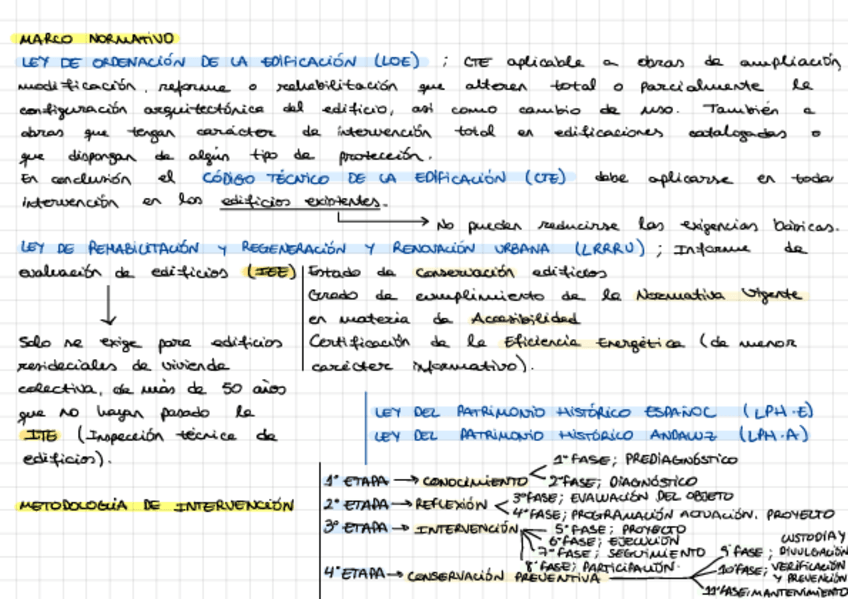 MARCO NORMATIVO
LEY DE ORDENACIÓN DE LA EDIFICACIÓN (LOE) ; CTE aplicable a obras de ampliación,
modificación, reforma o rehabilitación que alteren total o parcialmente la
configuración arquitectónica del edificio, así como cambio de uso. También a
obras que tengan carácter de intervención total en edificaciones catalogadas o
que dispongan de algún tipo de protección.
En conclusión el CÓDIGO TÉCNICO DE LA EDIFICACIÓN (CTE) debe aplicarse en toda
intervención en los edificios existentes.
No pueden reducirse las exigencias básicas.
LEY DE REHABILITACIÓN Y REGENERACIÓN Y RENOVACIÓN URBANA (LRRRU) ; Informe de
evaluación de edificios (IEE)
Estado de conservación edificios
Grado de cumplimiento de la Normativa Vigente
en materia de Accesibilidad
Certificación de la Eficiencia Energética (de menor
carácter informativo).
Solo se exige para edificios
resideciales de vivienda
colectiva, de más de 50 años
que no hayan pasado la
ITE (Inspección técnica de
edificios).
LEY DEL PATRIMONIO HISTÓRICO ESPAÑOL (LPH.E)
LEY DEL PATRIMONIO HISTÓRICO ANDALUZ (LPH.A)
METODOLOGÍA DE INTERVENCIÓN
1º ETAPA → CONOCIMIENTO
1ª FASE; PREDIAGNÓSTICO
2ª FASE; DIAGNÓSTICO
2º ETAPA → REFLEXIÓN
3ª FASE; EVALUACIÓN DEL OBJETO
4ª FASE; PROGRAMACIÓN ACTUACIÓN. PROYECTO
3º ETAPA → INTERVENCIÓN
5ª FASE; PROYECTO
6ª FASE; EJECUCIÓN
7ª FASE; SEGUIMIENTO
8ª FASE; PARTICIPACIÓN.
4º ETAPA → CONSERVACIÓN PREVENTIVA
9ª FASE; CUSTODIA Y
DIVULGACIÓN
10ª FASE; VERIFICACIÓN
Y PREVENCIÓN
11ª FASE; MANTENIMIENTO